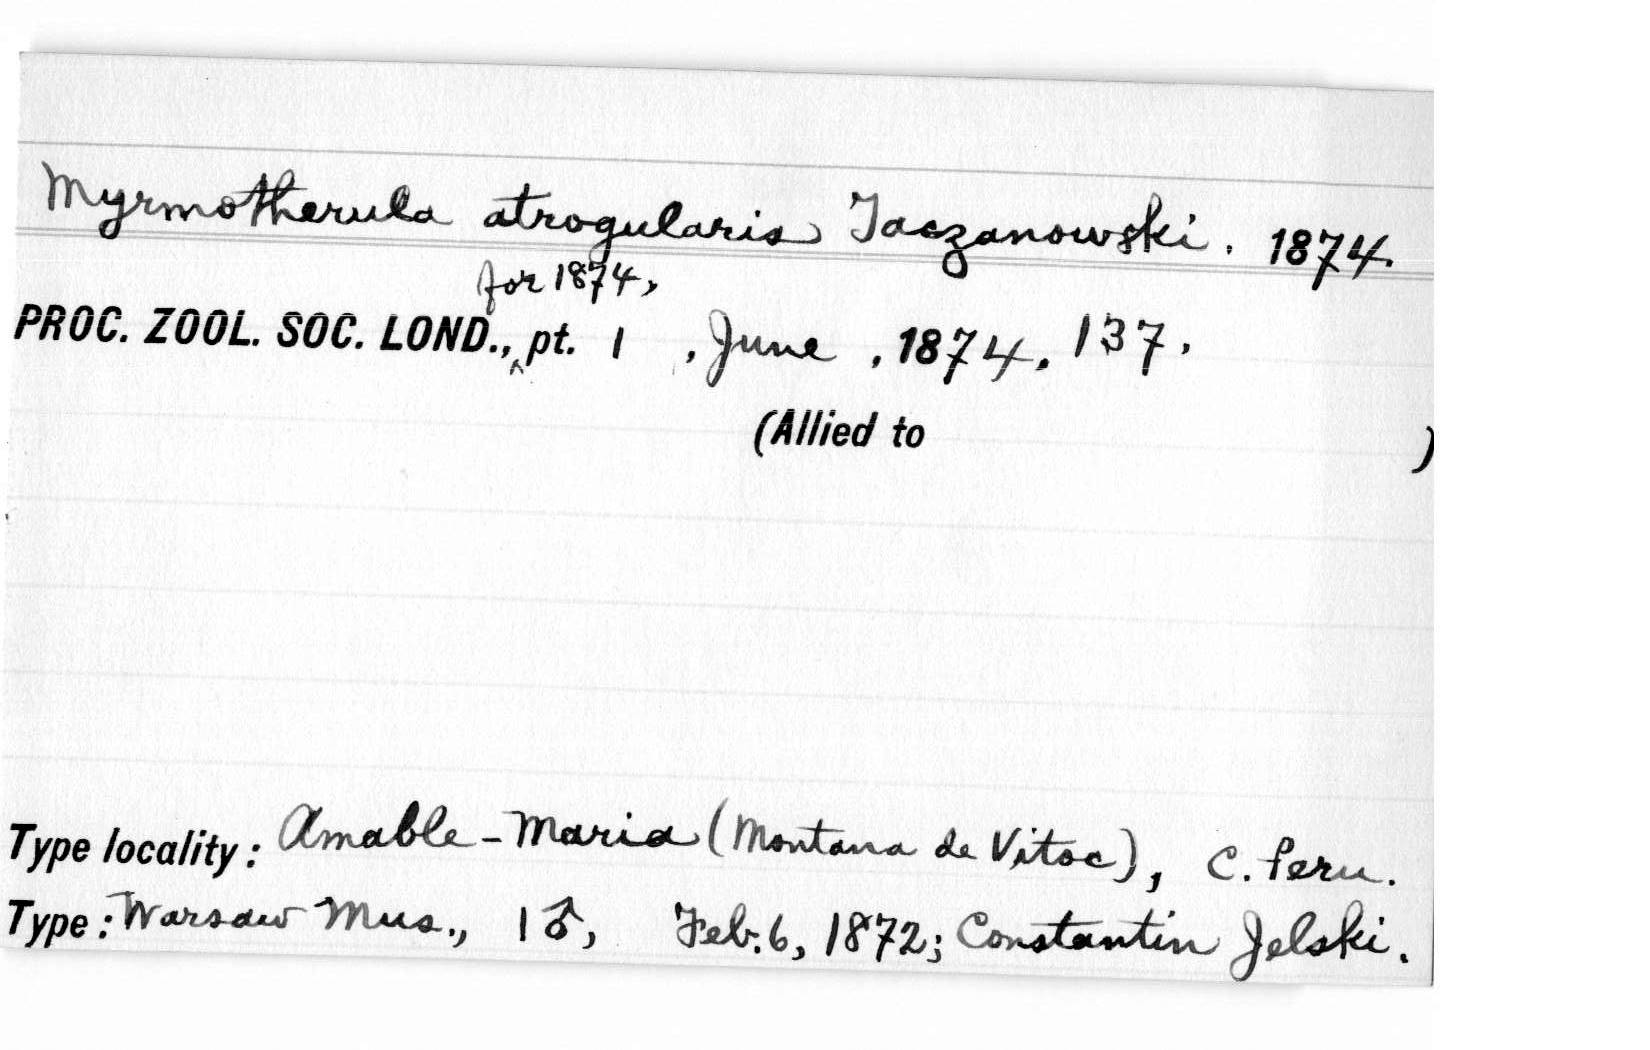 Myrmotherula atrogularis Taczanowski. 1874.
for 1874,
PROC. ZOOL. SOC. LOND., ^ pt. 1 , June , 1874. 137.
(Allied to )
Type locality: Amable-Maria (Montana de Vitoc), C. Peru.
Type: Warsaw Mus., 1 ♂, Feb. 6, 1872; Constantin Jelski.